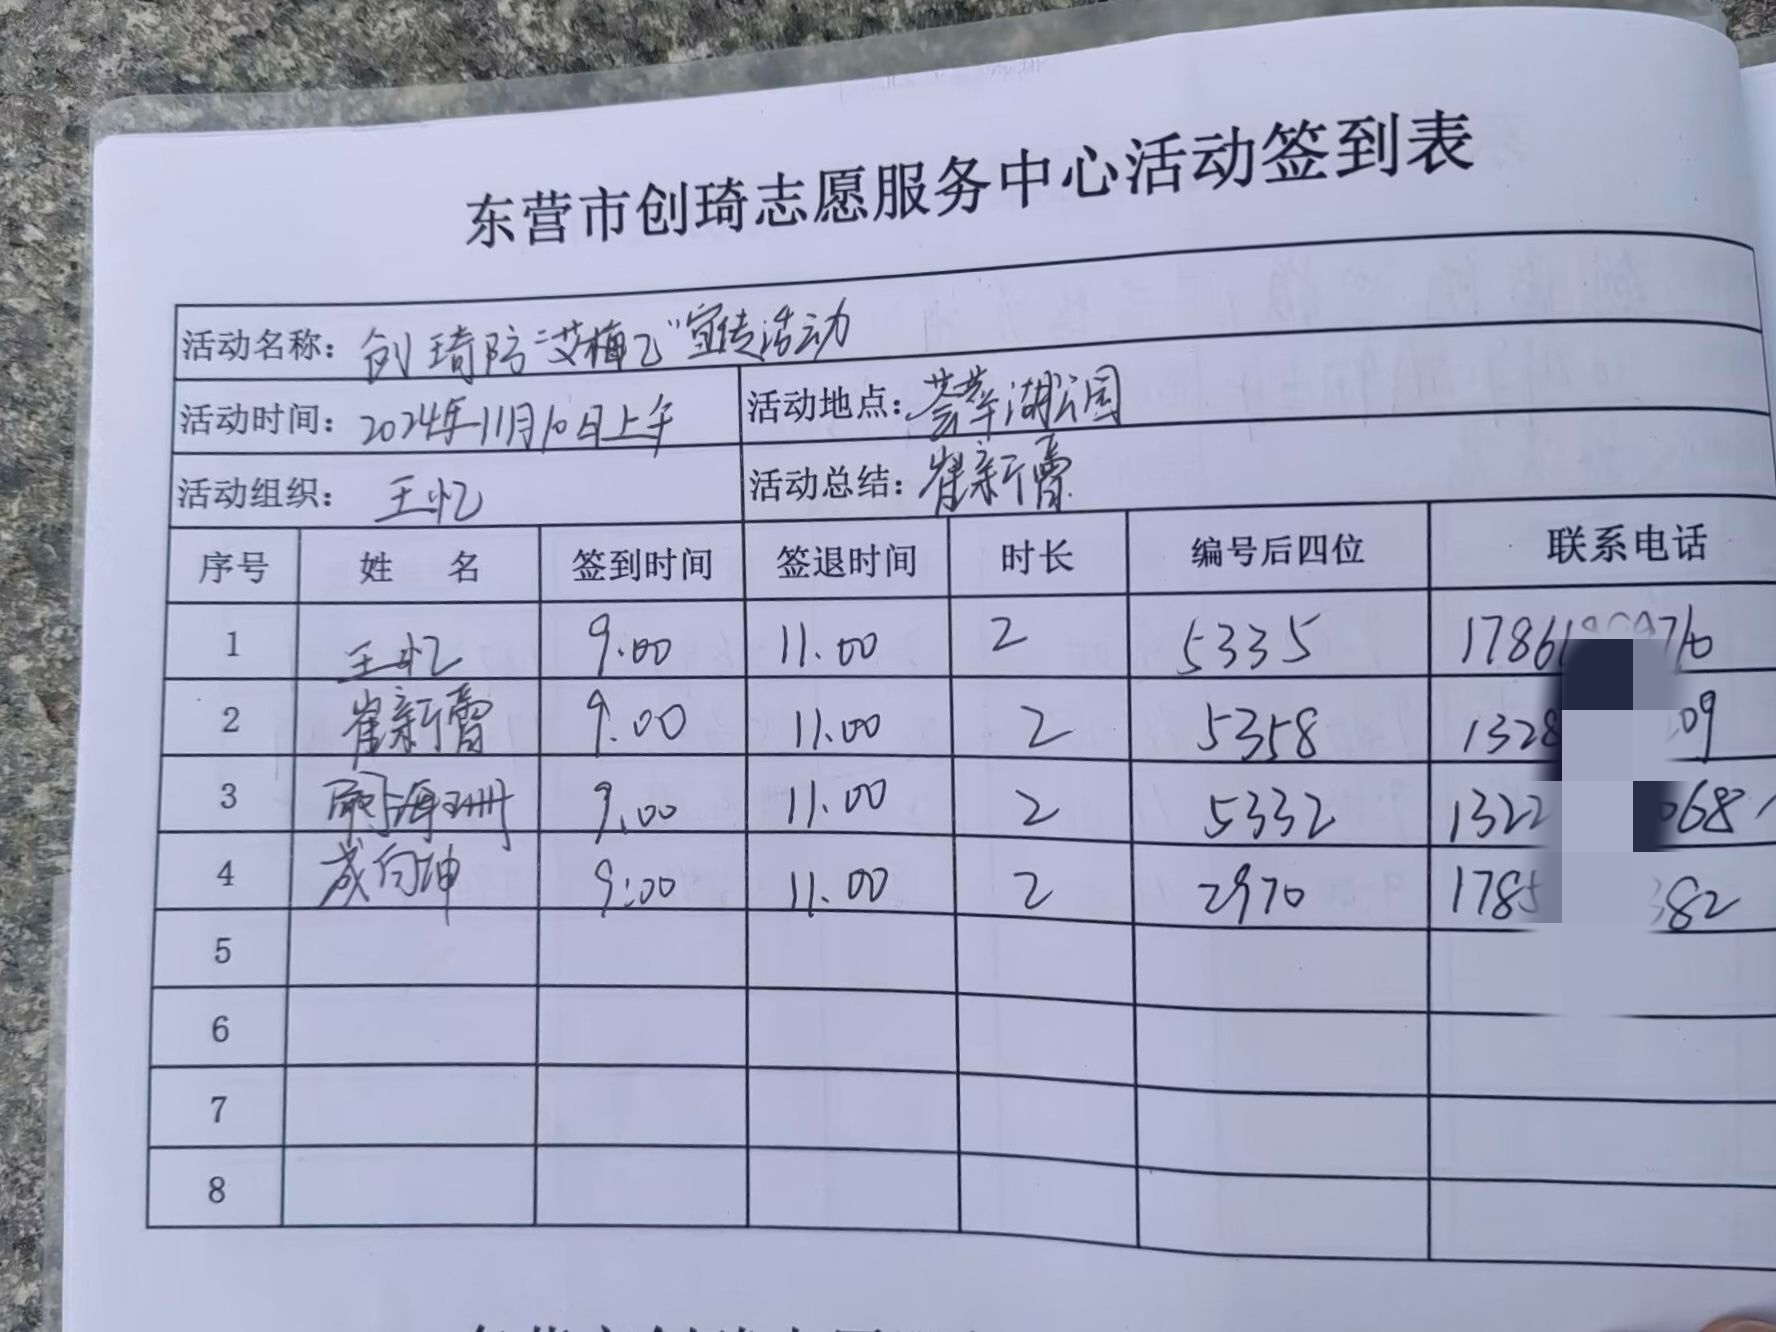 东营市创琦志愿服务中心活动签到表
活动名称：创琦防“艾梅乙”宣传活动
活动时间：2024年11月10日上午 活动地点：荟萃湖公园
活动组织：王忆 活动总结：崔新蕾
序号 姓 名 签到时间 签退时间 时长 编号后四位 联系电话
1 王忆 9.00 11.00 2 5335 1786 76
2 崔新蕾 9.00 11.00 2 5358 1328 09
3 海珊 9.00 11.00 2 5332 1322 068
4 成向坤 9:00 11.00 2 2970 1785 382
5
6
7
8